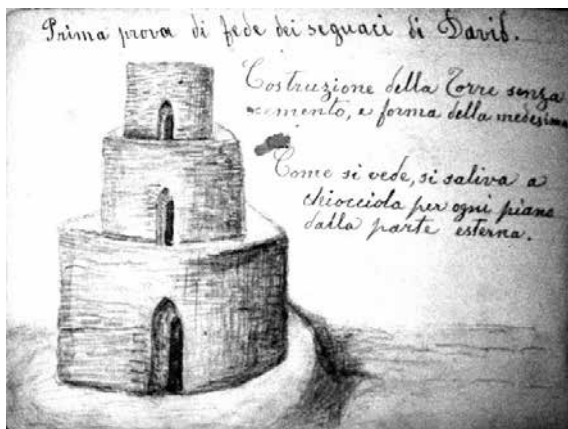 Prima prova di fede dei seguaci di David.
Costruzione della Torre senza
cemento, e forma della medesima
Come si vede, si saliva a
chiocciola per ogni piano
dalla parte esterna.